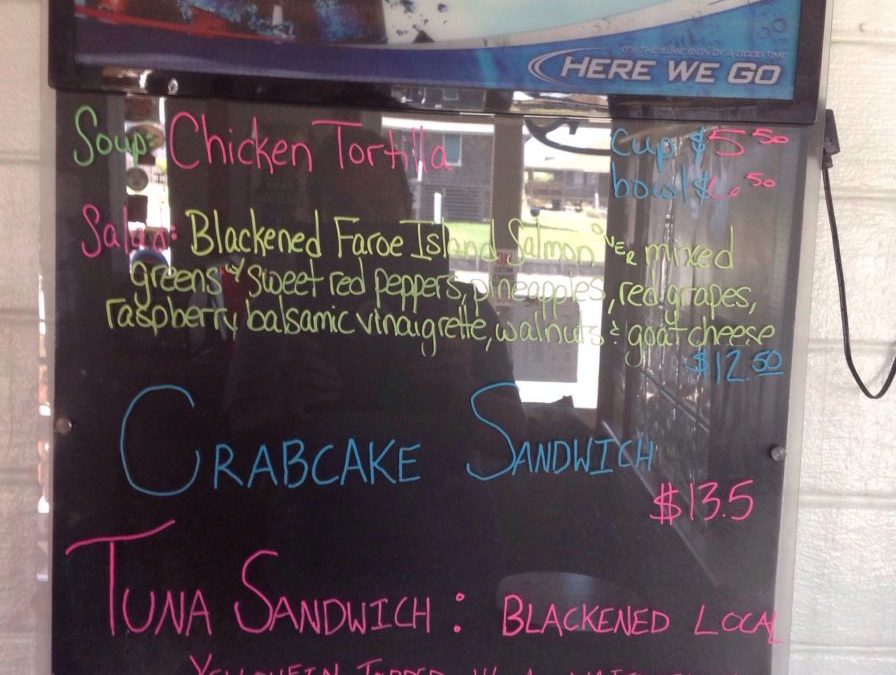 IT'S THE SURE SIGN OF A GOOD TIME
HERE WE GO
Soup: Chicken Tortilla cup $5.50
bowl $6.50
Salad: Blackened Faroe Island Salmon OVER mixed
greens w/ sweet red peppers, pineapples, red grapes,
raspberry balsamic vinaigrette, walnuts & goat cheese
$12.50
CRABCAKE SANDWICH
$13.5
TUNA SANDWICH: BLACKENED LOCAL
YELLOWFIN TOPPED W/ A